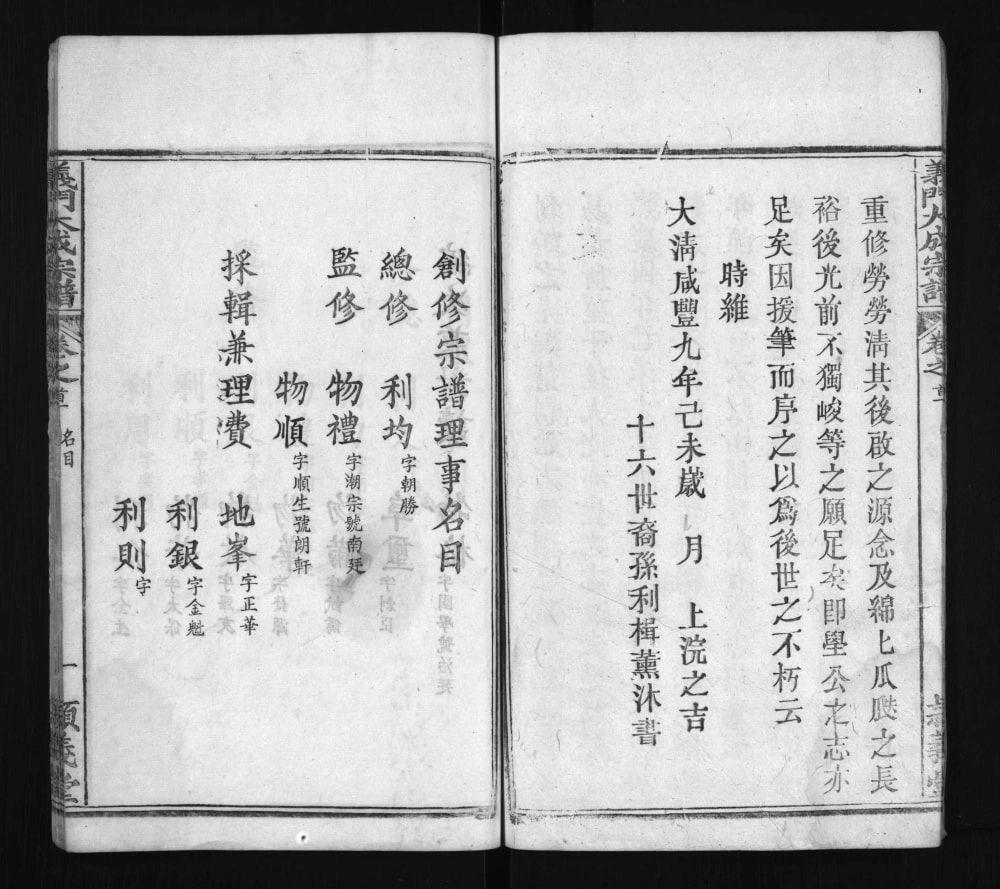 義門大成宗譜 卷之首
重修勞勞清其後啟之源念及綿匕瓜瓞之長
裕後光前不獨峻等之願足矣即學公之志亦
足矣因援筆而序之以爲後世之不朽云
時維
大清咸豐九年己未歲 月 上浣之吉
十六世裔孫利楫薰沐書
創修宗譜理事名目
總修 利均 字朝勝
監修 物禮 字潮宗號南廷
物順 字順生號朗軒
採輯兼理費 地峯 字正華
利銀 字金魁
利則 字
義門大成宗譜 卷之首 名目 一 順義堂